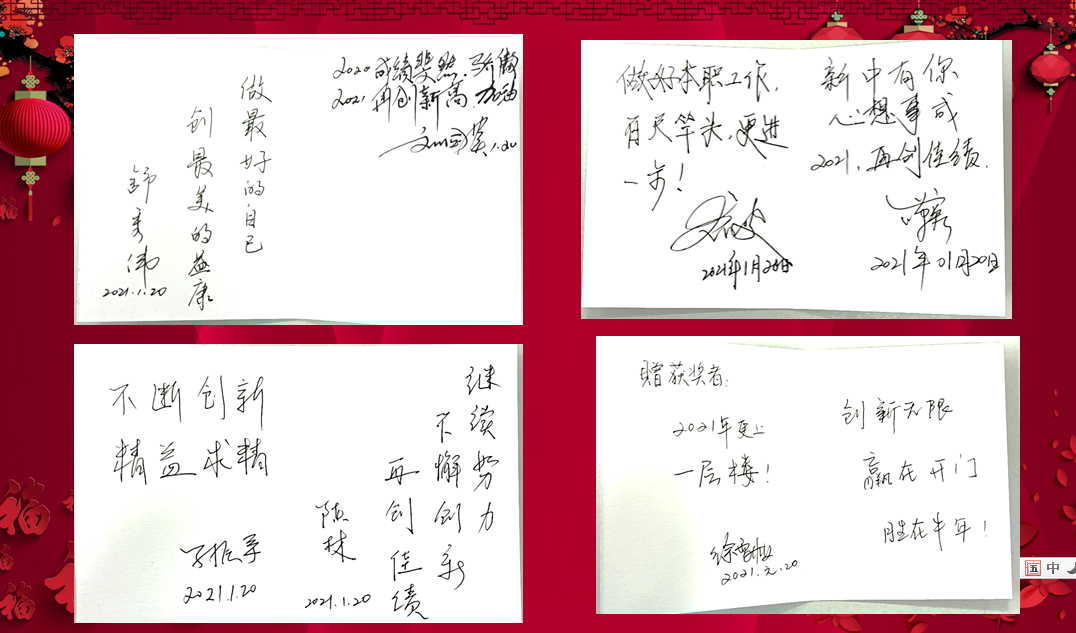 2020成绩斐然，骄傲
2021再创新高，加油
1.20
做最好的自己
创最美的益康
2021.1.20
做好本职工作，
百尺竿头，更进
一步！
2021年1月20日
新中有你
心想事成
2021，再创佳绩.
2021年01月20日
不断创新
精益求精
2021.1.20
继续努力
不懈创新
再创佳绩
陈林
2021.1.20
赠获奖者：
2021年更上
一层楼！
2021.元.20
创新无限
赢在开门
胜在牛年！
五 中